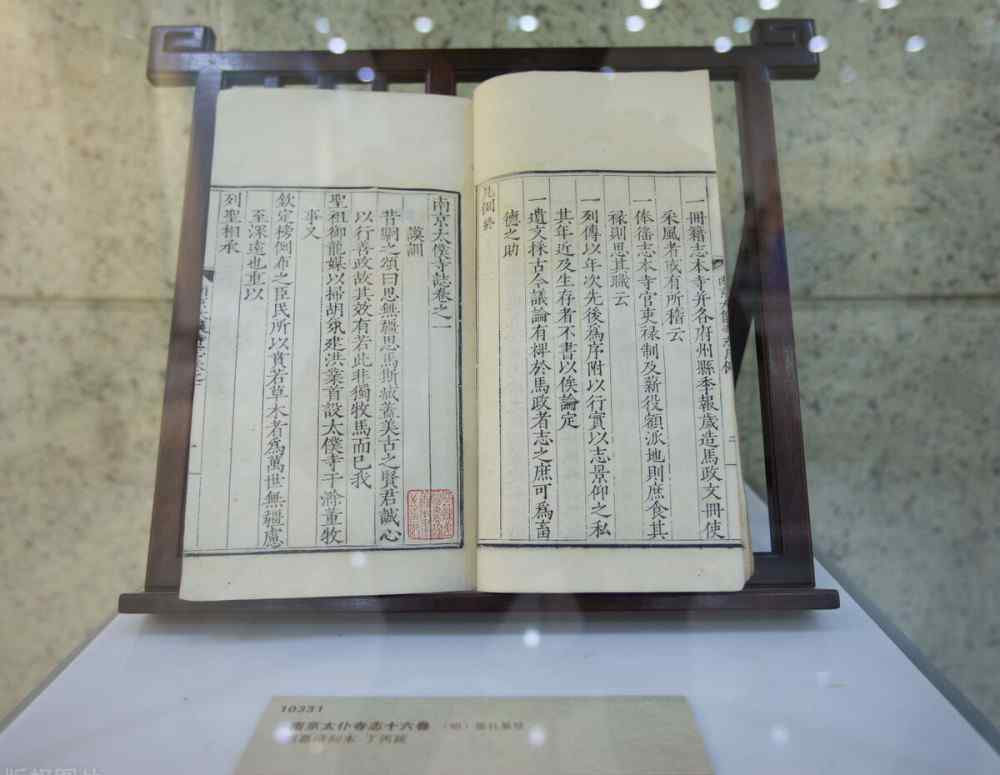 一冊籍志本寺并各府州縣季報歲造馬政文冊使
采風者或有所稽云
一俸徭志本寺官吏祿制及薪役額派地則庶食其
祿則思其職云
一列傳以年次先後為序附以行實以志景仰之私
其年近及生存者不書以俟論定
一遺文採古今議論有裨於馬政者志之庶可為畜
德之助
凡例終
南京太僕寺誌卷之一
謨訓
昔嗣之頌曰思無疆思馬斯臧蓋美古之賢君誠心
以行善政故其效有若此非獨牧馬而已我
聖祖御龍媒以掃胡氛建洪業首設太僕寺于滁董牧
事又
欽定榜例布之臣民所以貴若草木者為萬世無疆慮
至深遠也重以
列聖相承
10331
南京太仆寺志十六卷 （明）